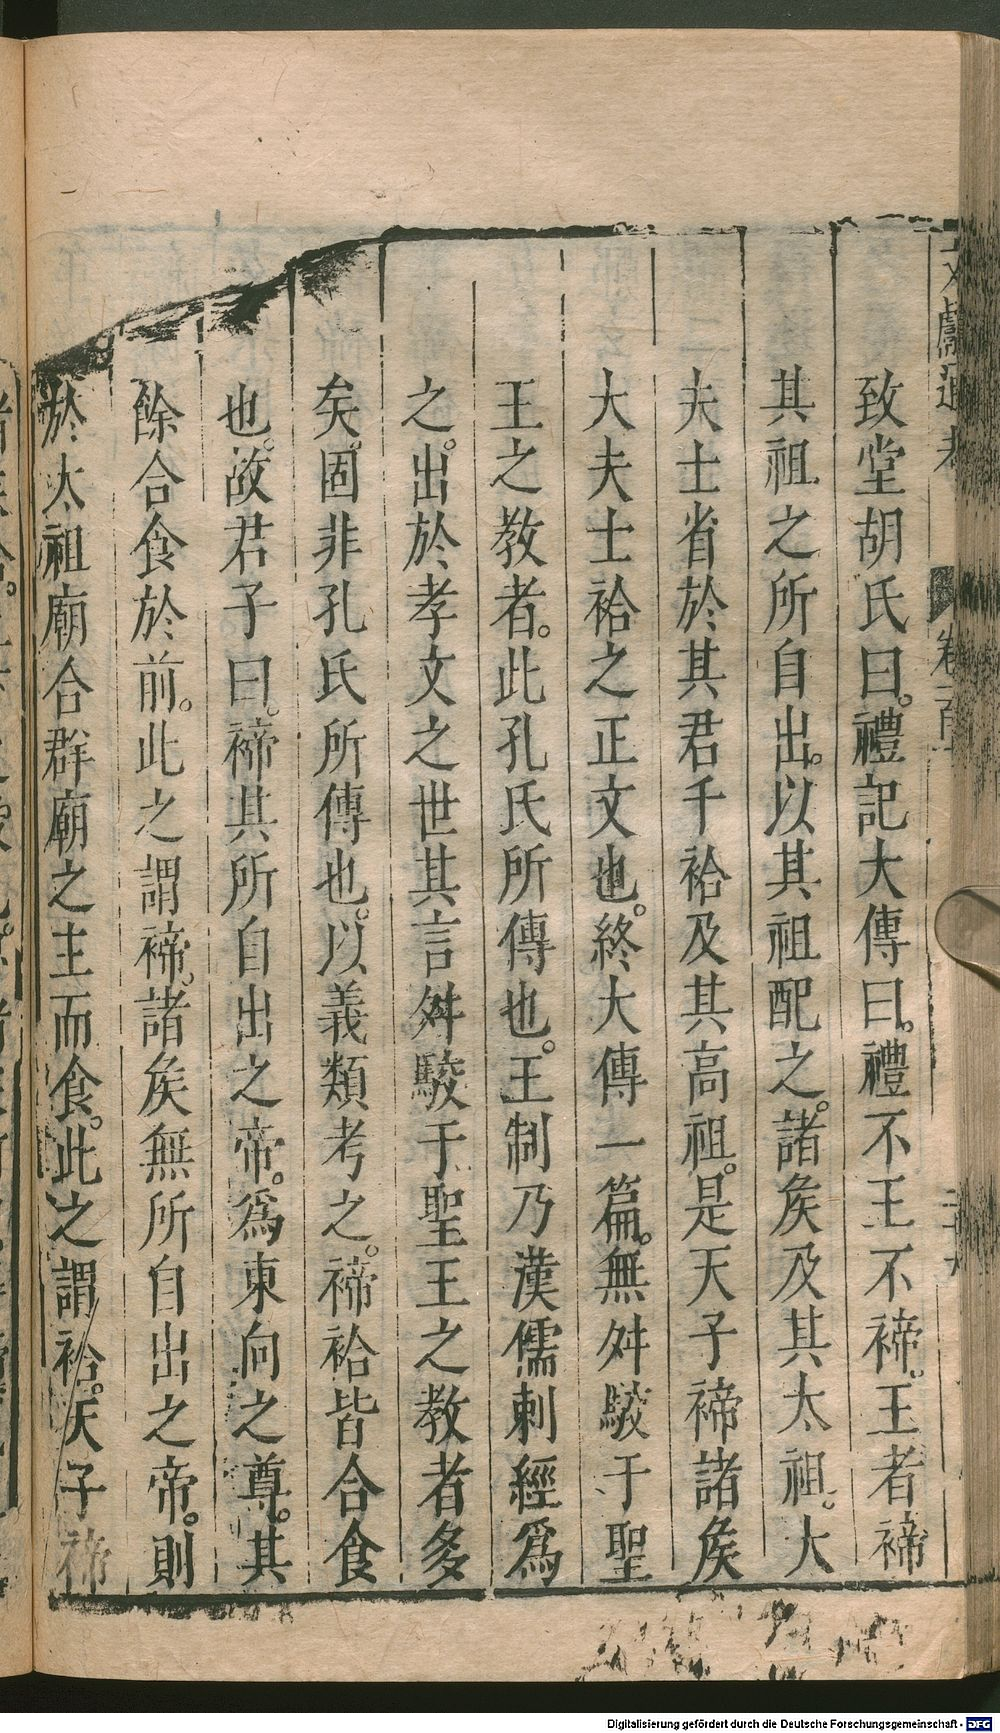 文獻通考 卷一百
致堂胡氏曰。禮記大傳曰。禮不王不禘。王者禘
其祖之所自出。以其祖配之。諸矦及其太祖。大
夫士省於其君干祫及其高祖。是天子禘諸矦
大夫士祫之正文也。終大傳一篇。無舛駮于聖
王之教者。此孔氏所傳也。王制乃漢儒刺經爲
之。出於孝文之世其言舛駮于聖王之教者多
矣。固非孔氏所傳也。以義類考之。禘祫皆合食
也。故君子曰。禘其所自出之帝。爲東向之尊。其
餘合食於前。此之謂禘。諸矦無所自出之帝。則
於太祖廟合群廟之主而食。此之謂祫。天子禘
Digitalisierung gefördert durch die Deutsche Forschungsgemeinschaft - DFG